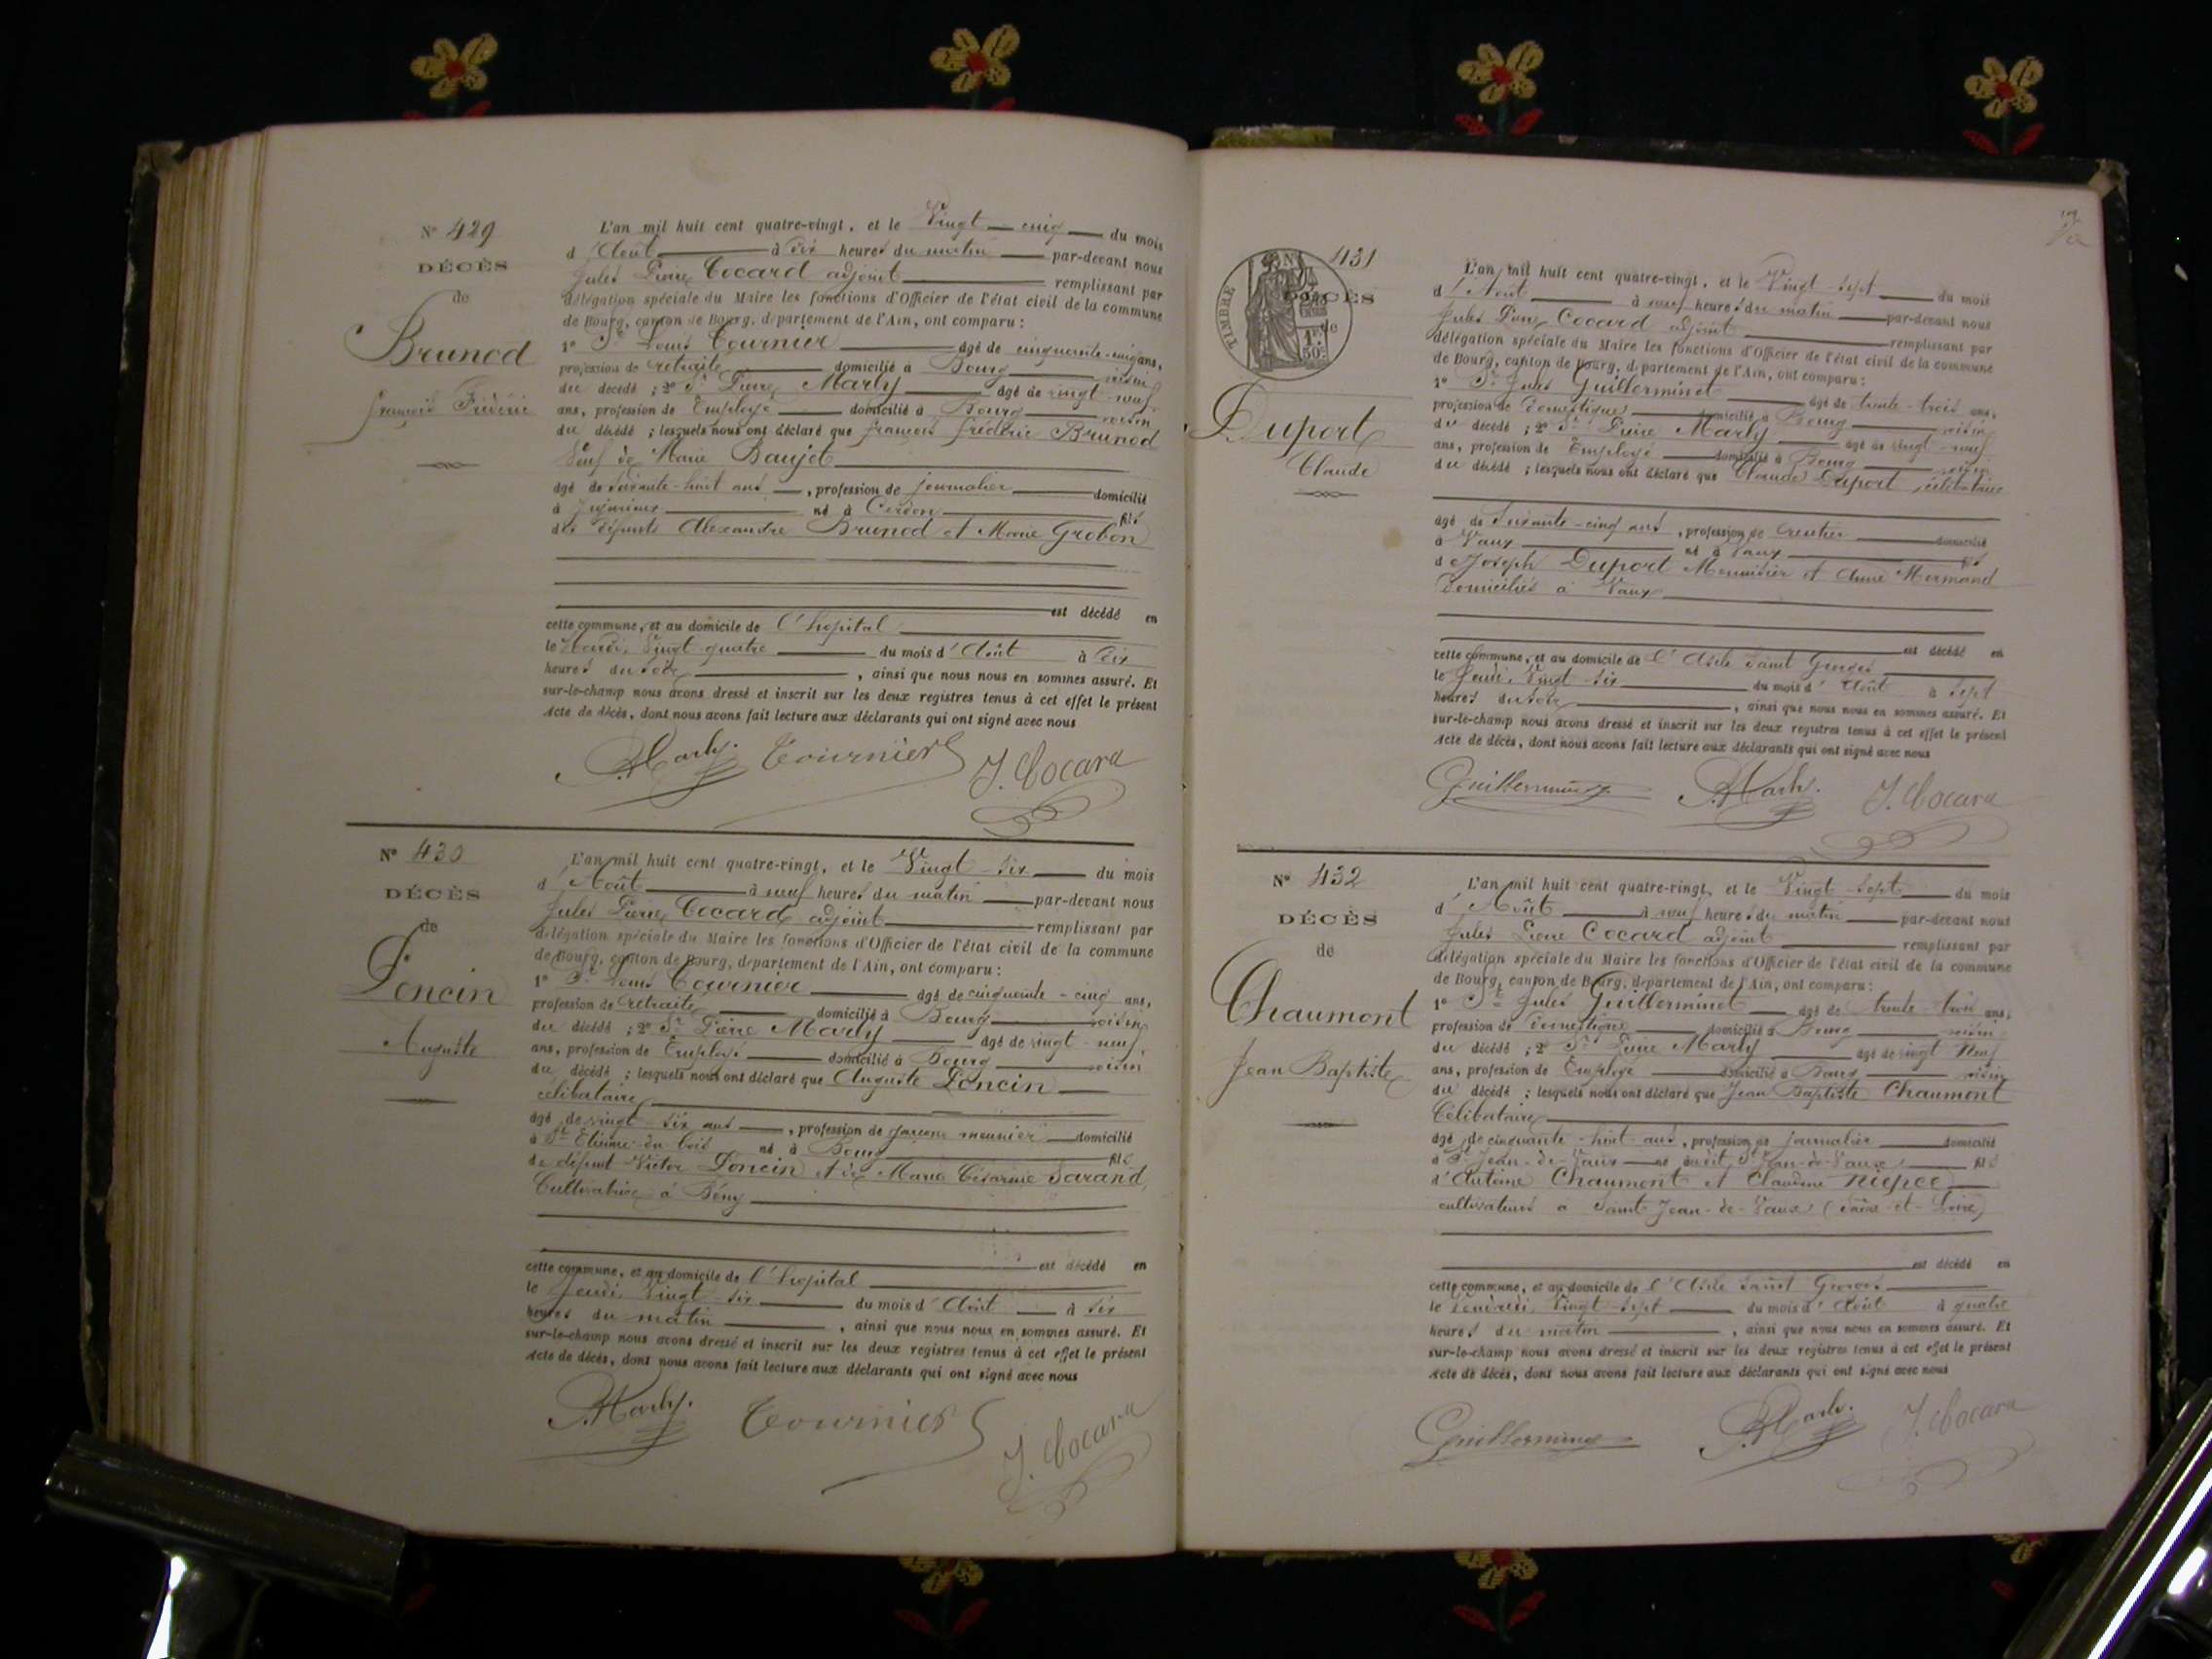 N° 429
DÉCÈS
de
Brunod
François Frédéric
L'an mil huit cent quatre-vingt, et le Vingt-cinq du mois
d'Août à dix heures du matin par-devant nous
Jules Pierre Cocard adjoint remplissant par
délégation spéciale du Maire les fonctions d'Officier de l'état civil de la commune
de Bourg, canton de Bourg, département de l'Ain, ont comparu :
1° Sr Louis Tournier âgé de cinquante-cinq ans,
profession de retraité domicilié à Bourg voisin
du décédé ; 2° Sr Pierre Marly âgé de vingt-neuf
ans, profession de Employé domicilié à Bourg voisin
du décédé ; lesquels nous ont déclaré que François Frédéric Brunod
Veuf de Marie Baujet
âgé de soixante-huit ans, profession de journalier domicilié
à Jujurieux né à Cerdon fils
des défunts Alexandre Brunod et Marie Grobon
est décédé en
cette commune, et au domicile de l'hopital
le Mardi Vingt-quatre du mois d'Août à dix
heures du soir, ainsi que nous nous en sommes assuré. Et
sur-le-champ nous avons dressé et inscrit sur les deux registres tenus à cet effet le présent
Acte de décès, dont nous avons fait lecture aux déclarants qui ont signé avec nous
P. Marly. Tournier J. Cocard
N° 430
DÉCÈS
de
Poncin
Auguste
L'an mil huit cent quatre-vingt, et le Vingt-six du mois
d'Août à neuf heures du matin par-devant nous
Jules Pierre Cocard adjoint remplissant par
délégation spéciale du Maire les fonctions d'Officier de l'état civil de la commune
de Bourg, canton de Bourg, département de l'Ain, ont comparu :
1° Sr Louis Tournier âgé de cinquante-cinq ans,
profession de retraité domicilié à Bourg voisin
du décédé ; 2° Sr Pierre Marly âgé de vingt-neuf
ans, profession de Employé domicilié à Bourg voisin
du décédé ; lesquels nous ont déclaré que Auguste Poncin
célibataire
âgé de vingt-six ans, profession de garçon meunier domicilié
à St Etienne-du-bois né à Bourg fils
de défunt Victor Poncin et de Marie Césarine Sarand,
Cultivatrice à Bény
est décédé en
cette commune, et au domicile de l'hopital
le Jeudi Vingt-six du mois d'Août à six
heures du matin, ainsi que nous nous en sommes assuré. Et
sur-le-champ nous avons dressé et inscrit sur les deux registres tenus à cet effet le présent
Acte de décès, dont nous avons fait lecture aux déclarants qui ont signé avec nous
P. Marly. Tournier J. Cocard
431
TIMBRE
DÉCÈS
de
1F.
50c.
Duport
Claude
L'an mil huit cent quatre-vingt, et le Vingt-sept du mois
d'Août à neuf heures du matin par-devant nous
Jules Pierre Cocard adjoint remplissant par
délégation spéciale du Maire les fonctions d'Officier de l'état civil de la commune
de Bourg, canton de Bourg, département de l'Ain, ont comparu :
1° Sr Jules Guillerminet âgé de trente-trois ans,
profession de domestique domicilié à Bourg voisin
du décédé ; 2° Sr Pierre Marly âgé de vingt-neuf
ans, profession de Employé domicilié à Bourg voisin
du décédé ; lesquels nous ont déclaré que Claude Duport célibataire
âgé de soixante-cinq ans, profession de rentier domicilié
à Vaux né à Vaux fils
de Joseph Duport Menuisier et Anne Mermand
domiciliés à Vaux
est décédé en
cette commune, et au domicile de l'Asile Saint Georges
le Jeudi Vingt-six du mois d'Août à sept
heures du soir, ainsi que nous nous en sommes assuré. Et
sur-le-champ nous avons dressé et inscrit sur les deux registres tenus à cet effet le présent
Acte de décès, dont nous avons fait lecture aux déclarants qui ont signé avec nous
Guillerminet P. Marly. J. Cocard
N° 432
DÉCÈS
de
Chaumont
Jean Baptiste
L'an mil huit cent quatre-vingt, et le Vingt-sept du mois
d'Août à neuf heures du matin par-devant nous
Jules Pierre Cocard adjoint remplissant par
délégation spéciale du Maire les fonctions d'Officier de l'état civil de la commune
de Bourg, canton de Bourg, département de l'Ain, ont comparu :
1° Sr Jules Guillerminet âgé de trente-trois ans,
profession de domestique domicilié à Bourg voisin
du décédé ; 2° Sr Pierre Marly âgé de vingt-Neuf
ans, profession de Employé domicilié à Bourg voisin
du décédé ; lesquels nous ont déclaré que Jean Baptiste Chaumont
Célibataire
âgé de cinquante-huit ans, profession de journalier domicilié
à St Jean-de-Vaux né audit St Jean-de-Vaux fils
d'Antoine Chaumont et Claudine Niepce
cultivateurs à Saint-Jean-de-Vaux (Saône-et-Loire)
est décédé en
cette commune, et au domicile de l'Asile Saint Georges
le Vendredi Vingt-sept du mois d'Août à quatre
heures du matin, ainsi que nous nous en sommes assuré. Et
sur-le-champ nous avons dressé et inscrit sur les deux registres tenus à cet effet le présent
Acte de décès, dont nous avons fait lecture aux déclarants qui ont signé avec nous
Guillerminet P. Marly. J. Cocard